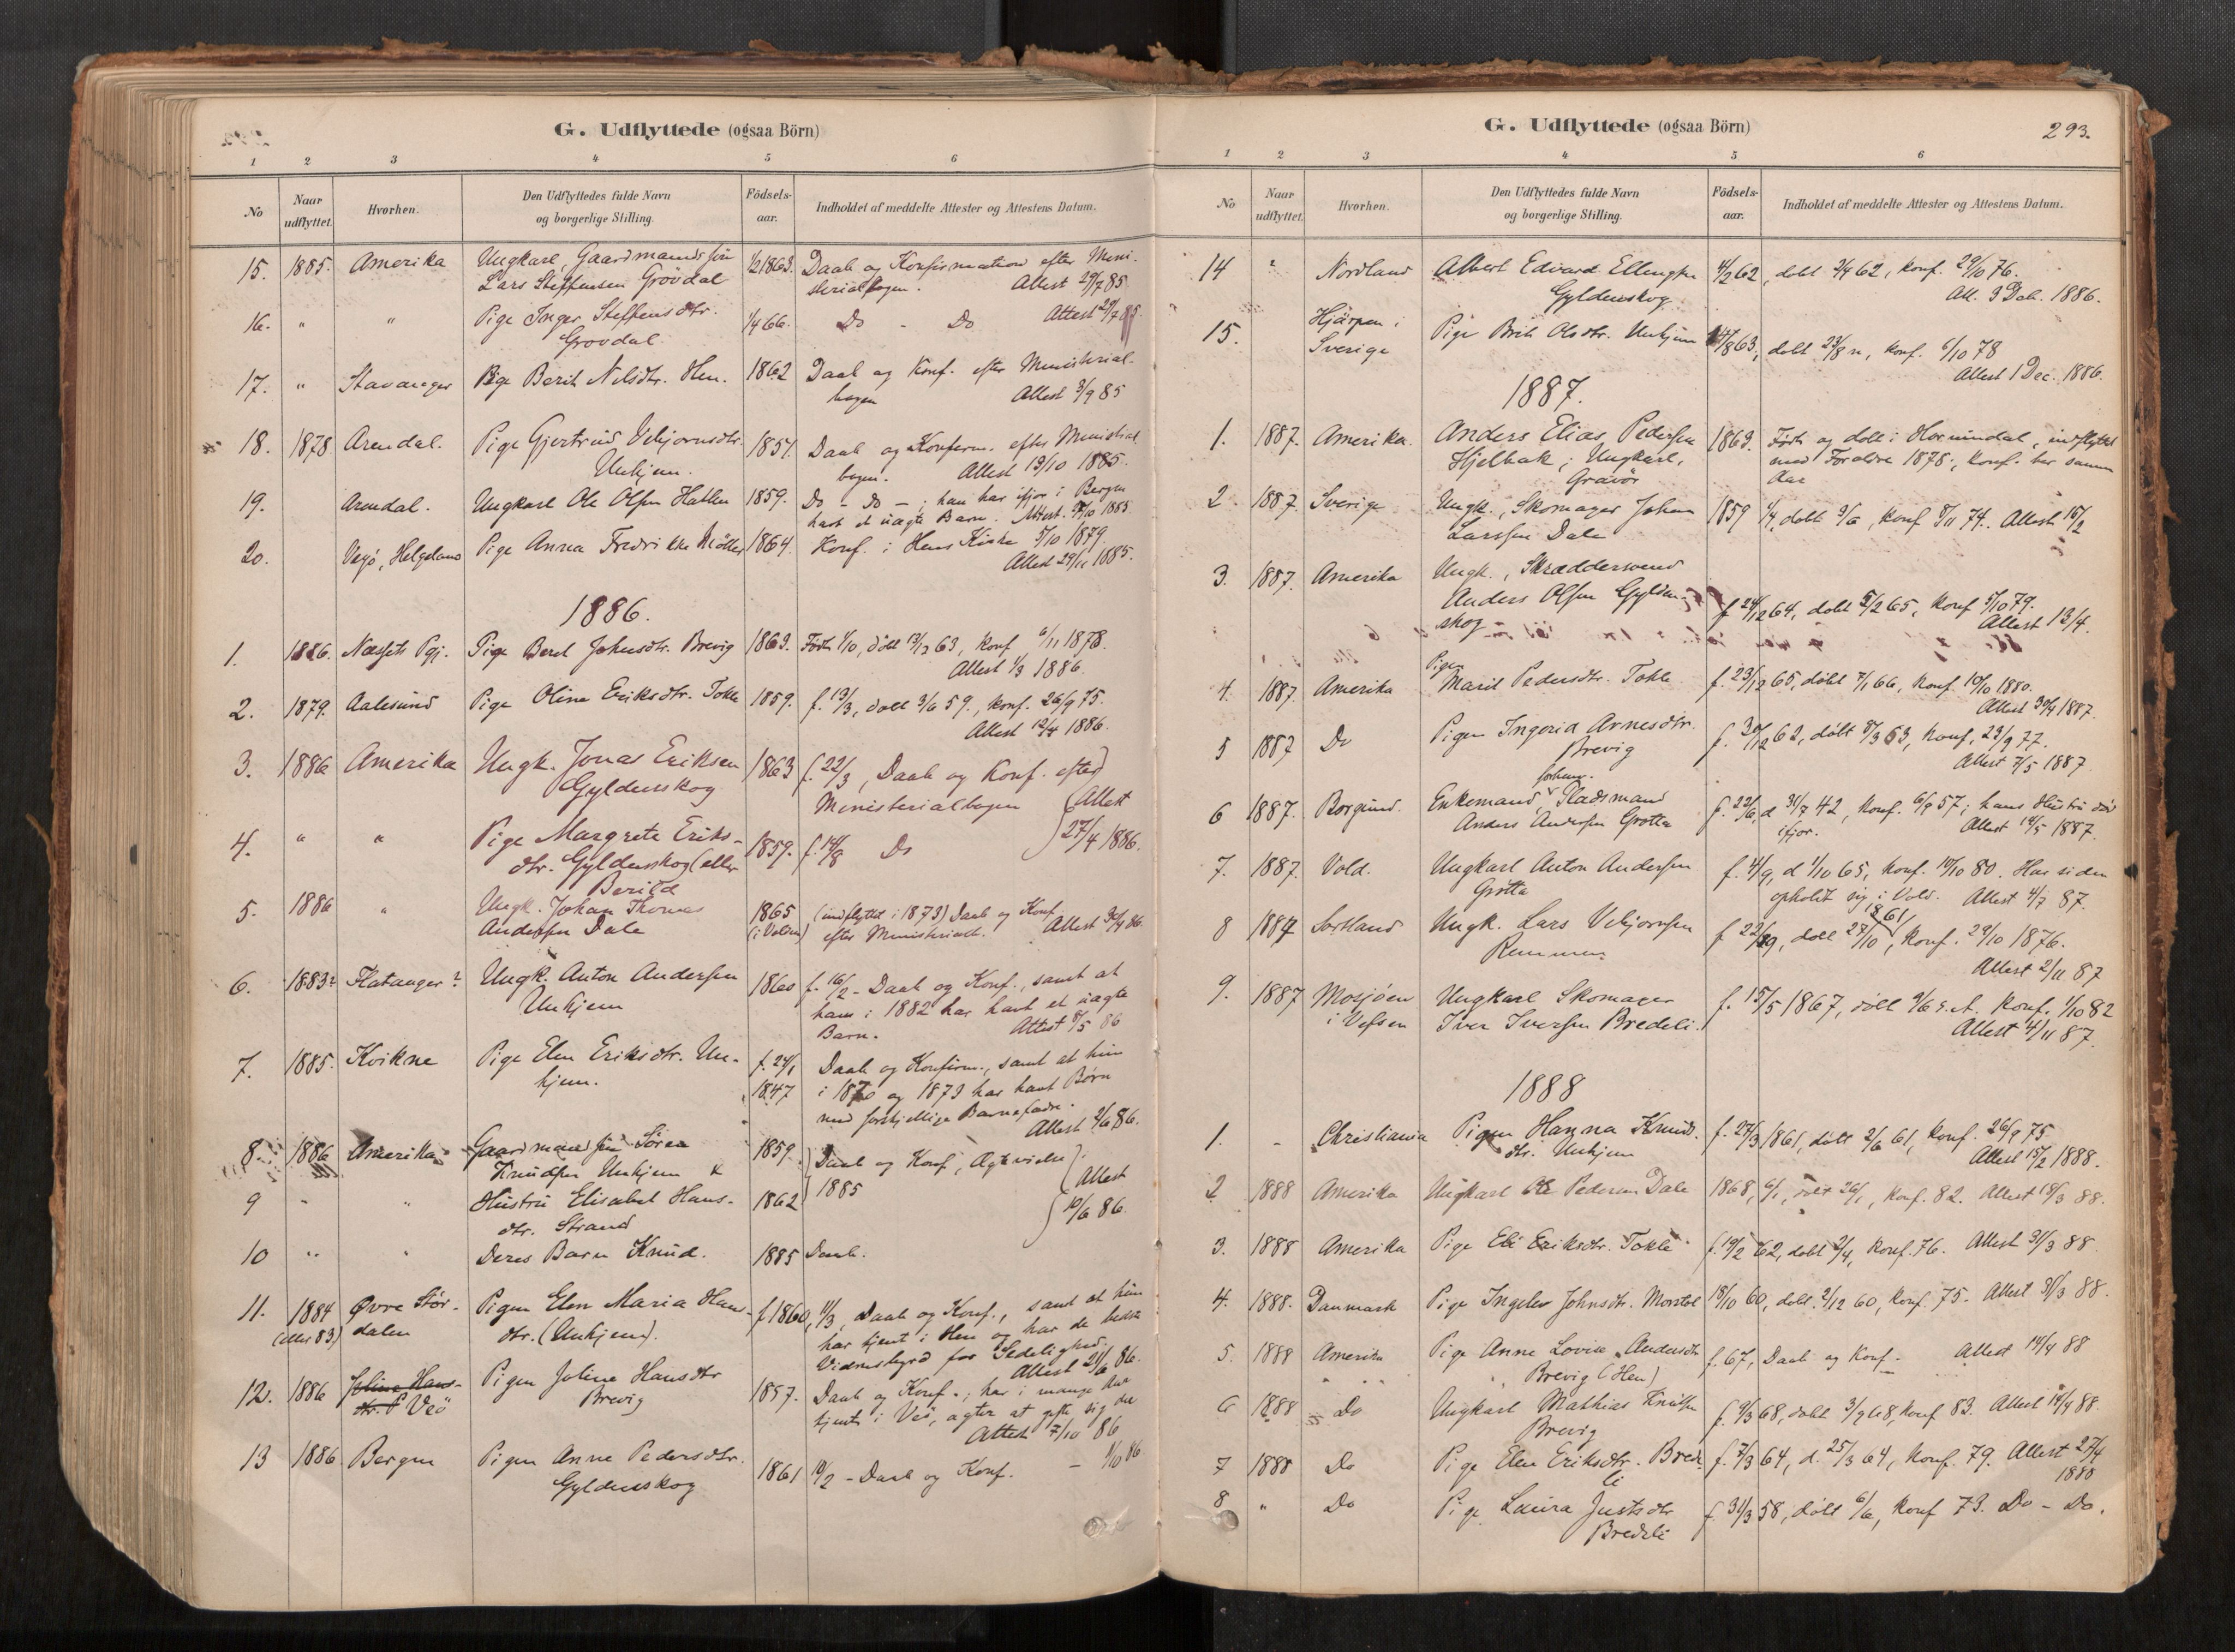 G. Udflyttede (ogsaa Börn)
1 2 3 4 5 6
No
Naar udflyttet.
Hvorhen.
Den Udflyttedes fulde Navn og borgerlige Stilling.
Födsels-aar.
Indholdet af meddelte Attester og Attestens Datum.
15. 1885. Amerika Ungkarl, Gaardmandssön 1/2 1863. Daab og Konfirmation efter Mini-
Lars Steffensen Grövdal sterialbogen. Attest 29/7 85.
16. " " Pige Inger Steffensdtr. 1/4 66. Do - Do Attest 29/7 85.
Grovdal.
17. " Stavanger Pige Berit Nilsdtr. Hen. 1862 Daab og Konf. efter Ministerial-
bogen Attest 3/9 85
18. 1878 Arendal. Pige Gjertrud Vebjornsdtr. 1857. Daab og Konfirm. efter Ministerial
Unhjem. bogen. Attest 13/10 1885.
19. Arendal. Ungkarl Ole Olsen Hatlen 1859. Do - Do - ; han har ifjor i Bergen
havt et uægte Barn. Attest. 1885
20. Vegö, Helgeland Pige Anna Fredrikke Möller 1864. Konf. i Hens Kirke 5/10 1879.
Attest 29/11 1885.
1886.
1. 1886. Næssets Pgj. Pige Beret Johnsdtr. Brevig 1863. Födt 1/10, döbt 63, konf 6/11 1878.
Attest 1/3 1886.
2. 1879. Aalesund Pige Oline Eriksdtr. Tokle 1859. f. 13/3, döbt 3/6 59., konf. 26/9 75.
Attest 12/4 1886.
3. 1886 Amerika Ungk. Jonas Eriksen 1863 f. 22/3, Daab og Konf. efter
Gyldenskog Ministerialbogen Attest
4. " " Pige Margrete Eriks- 1859. f. 14/8 Do 27/4 1886.
dtr. Gyldenskog (eller
Berild
5. 1886 " Ungk. Johan Thomas 1865 (indflyttet i 1873) Daab og Konf.
Andersen Dale (i Volden) efter Ministerialb. Attest 30/4 86
6. 1883? Flatanger? Ungk. Anton Andersen 1860 f. 16/2 - Daab og Konf., samt at
Unhjem han i 1882 har havt et uægte
Barn. Attest 8/5 86
7. 1885. Kvikne Pige Elen Eriksdtr. Un- f. 24/1 Daab og Konfirm., samt at hun
hjem. 1847 i 1870 og 1873 har havt Börn
med forskjellige Barnefædre.
Attest 2/6 86.
8. 1886 Amerika Gaardmand Sören 1859. Daab og Konf, Ægtevielse
Knudsen Unhjem & 1885 Attest
9 " " Hustru Elisabet Hans- 1862 10/6 86.
dtr. Strand
10 " " Deres Barn Knud. 1885 Daab.
11. 1884 Øvre Stör- Pigen Elen Maria Hans- f 1860, 11/3, Daab og Konf., samt at hun
(eller 83) dalen dtr. (Unhjem). har tjent i Hen og har de bedste
Vidnesbyrd for Sedelighed.
Attest 21/6 86.
12. 1886 Joline Hans- Pigen Joline Hansdtr 1857. Daab og Konf.; har i mange Aar
dtr. Veö Brevig tjent i Veö, agter at gifte sig der
Attest 7/10 86
13 1886 Bergen Pigen Anne Pedersdtr. 1861 19/2 - Daab og Konf. - 9/10 86.
Gyldenskog
G. Udflyttede (ogsaa Börn)
293.
1 2 3 4 5 6
No
Naar udflyttet.
Hvorhen.
Den Udflyttedes fulde Navn og borgerlige Stilling.
Födsels-aar.
Indholdet af meddelte Attester og Attestens Datum.
14 " Nordland Albert Edvard Ellingsen 4/2 62, döbt 2/4 62, konf. 29/10 76.
Gyldenskog Att. 3 Deb. 1886.
15. Hjärpen i Pige Brit Olsdtr. Unhjem 14/8 63, döbt 23/8 n, konf. 6/10 78
Sverige Attest 1 Dec. 1886.
1887.
1. 1887. Amerika. Anders Elias Pedersen 1863. Födt og döbt i Hornindal, indflyttet
Hjelbak; Ungkarl, med Forældre 1878, konf. her samme
Gravör Aar
2 1887. Sverige Ungk., Skomager Johan 1859 1/4, döbt 9/6, konf 8/11 74. Attest 15/2
Larssen Dale
3. 1887. Amerika Ungk., Skræddersvend
Anders Olsen Gylden- f 24/12 64, döbt 5/2 65, konf 5/10 79.
skog Attest 13/4.
4. 1887. Amerika Pigen
Marit Pedersdtr. Tokle f. 23/12 65, döbt 7/1 66, konf. 10/10 1880.
Attest 30/4 1887.
5 1887 Do Pigen Ingerid Arnesdtr. f. 30/12 62, döbt 8/3 63, konf. 23/9 77.
Brevig Attest 7/5 1887.
6 1887. Borgund. Enkemand, forhenv. Pladsmand f. 22/6, d 31/7 42, konf. 6/9 57; hans Hustru död
Anders Andersen Grotta ifjor. Attest 14/5 1887.
7. 1887. Vold. Ungkarl Anton Andersen f. 4/9, d 1/10 65, konf. 10/10 80. Har siden
Grotta opholdt sig i Vold. Attest 4/7 87.
8 1887 Sortland Ungk. Lars Vebjornsen f 22/9, döbt 27/10 1861, konf. 29/10 1876.
Remmem Attest 2/11 87
9. 1887 Mosjöen Ungkarl Skomager f. 15/5 1867, döbt 9/6 s.A. konf. 1/10 82
i Vefsen Iver Iversen Bredeli. Attest 4/11 87.
1888
1. - Christiania Pigen Hanna Knuds. f. 27/3 1861, döbt 2/6 61, konf. 26/9 75
dtr. Unhjem Attest 15/2 1888.
2 1888 Amerika Ungkarl Ole Pedersen Dale 1868, 6/1, döbt 26/1, konf. 82. Attest 18/3 88.
3. 1888 Amerika Pige Eli Eriksdtr. Tokle f. 19/2 62, döbt 2/4, konf. 76. Attest 31/3 88.
4. 1888. Danmark Pige Ingelev Johnsdtr. Morstöl 18/10 60, döbt 2/12 60, konf. 75. Attest 31/3 88.
5. 1888 Amerika Pige Anne Lovise Andersdtr f. 67, Daab og Konf. Attest 14/4 88
Brevig (Hen)
6 1888 Do Ungkarl Mathias Knutsen f. 9/3 68, döbt 3/9 68, konf 83. Attest 14/4 88.
Brevig
7 1888 Do Pige Elen Eriksdtr. Brede- f. 7/3 64, d. 25/3 64, konf. 79. Attest 27/4
li 1888
8 " Do Pige Laura Justsdtr f. 31/3 58, döbt 6/6, konf 73. Do - Do.
Bredeli